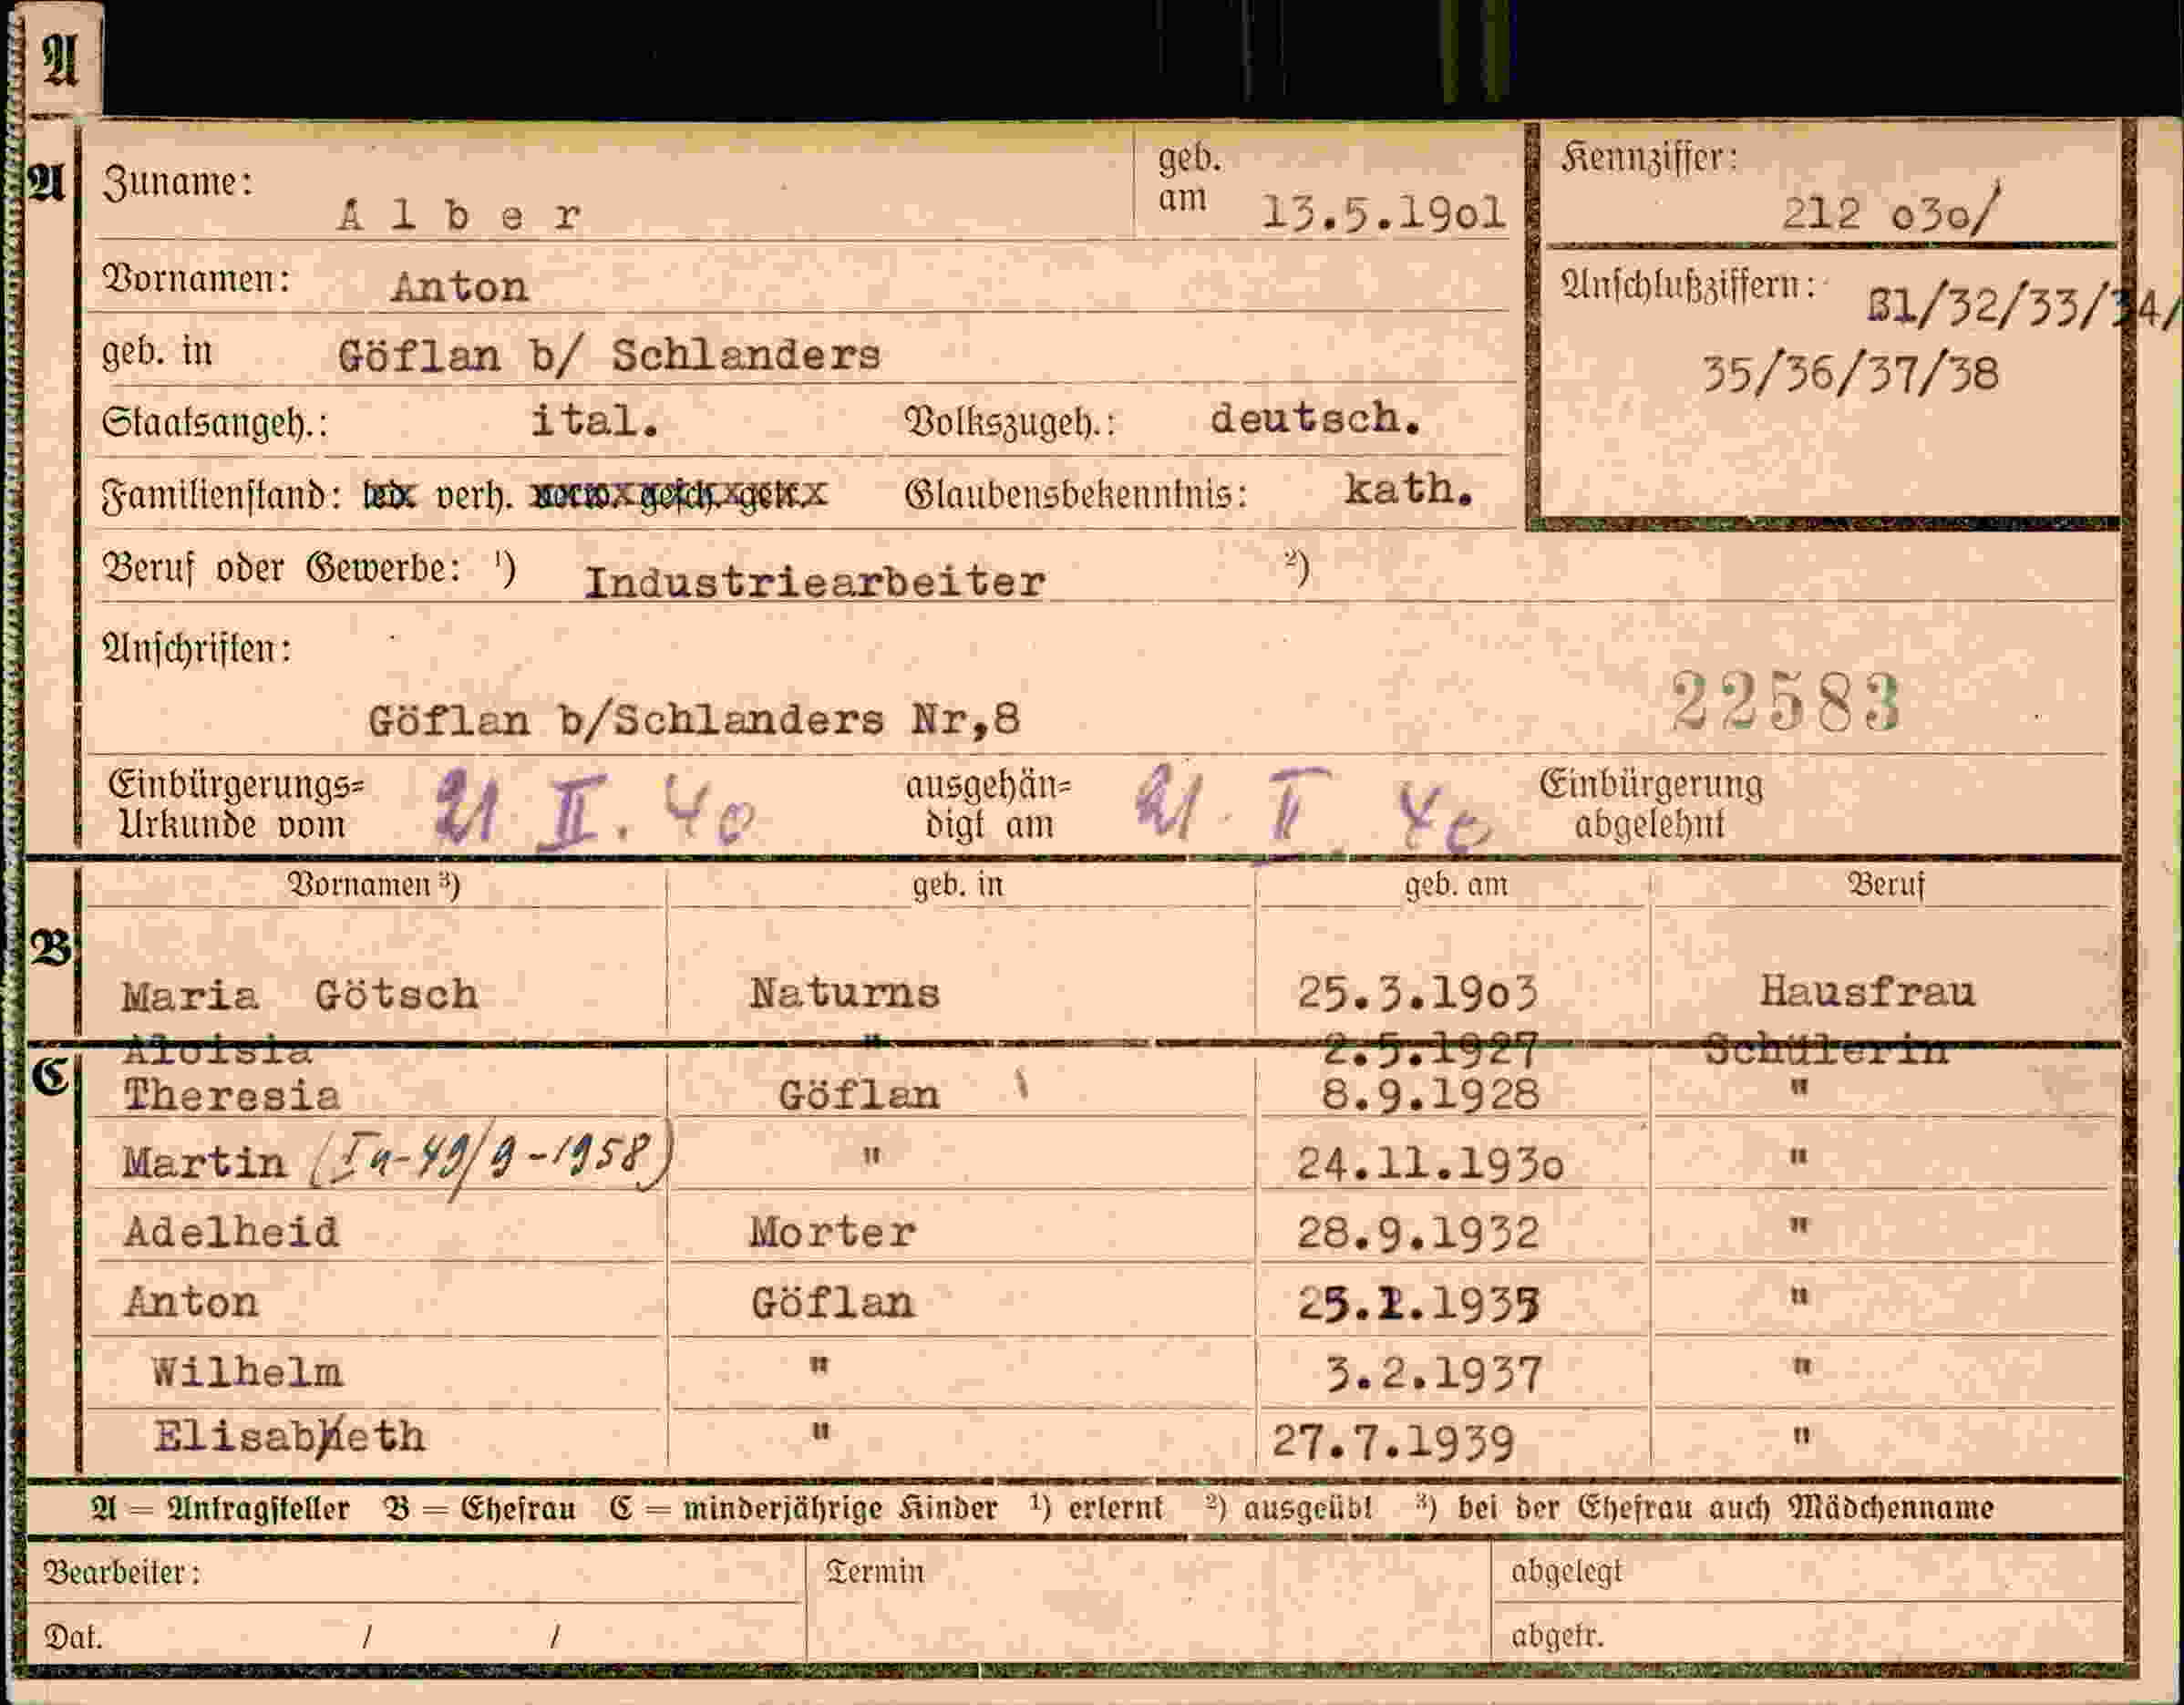 A
A
Zuname: Alber geb. am 13.5.19o1
Kennziffer: 212 o3o/
Vornamen: Anton
Anschlußziffern: 31/32/33/34/
35/36/37/38
geb. in Göflan b/ Schlanders
Staatsangeh.: ital. Volkszugeh.: deutsch.
Familienstand: led. verh. verw. gesch. getr. Glaubensbekenntnis: kath.
Beruf oder Gewerbe: ¹) Industriearbeiter ²)
Anschriften:
22583
Göflan b/Schlanders Nr,8
Einbürgerungs= Urkunde vom 21 II. 40 ausgehän= digt am 21. II. 40 Einbürgerung abgelehnt
Vornamen ³) geb. in geb. am Beruf
B
Maria Götsch Naturns 25.3.19o3 Hausfrau
Aloisia " 2.5.1927 Schülerin
C
Theresia Göflan 8.9.1928 "
Martin " 24.11.193o "
Adelheid Morter 28.9.1932 "
Anton Göflan "
Wilhelm " 3.2.1937 "
Elisabheth " 27.7.1939 "
A = Antragsteller B = Ehefrau C = minderjährige Kinder ¹) erlernt ²) ausgeübt ³) bei der Ehefrau auch Mädchenname
Bearbeiter: Termin abgelegt
Dat. / / abgetr.